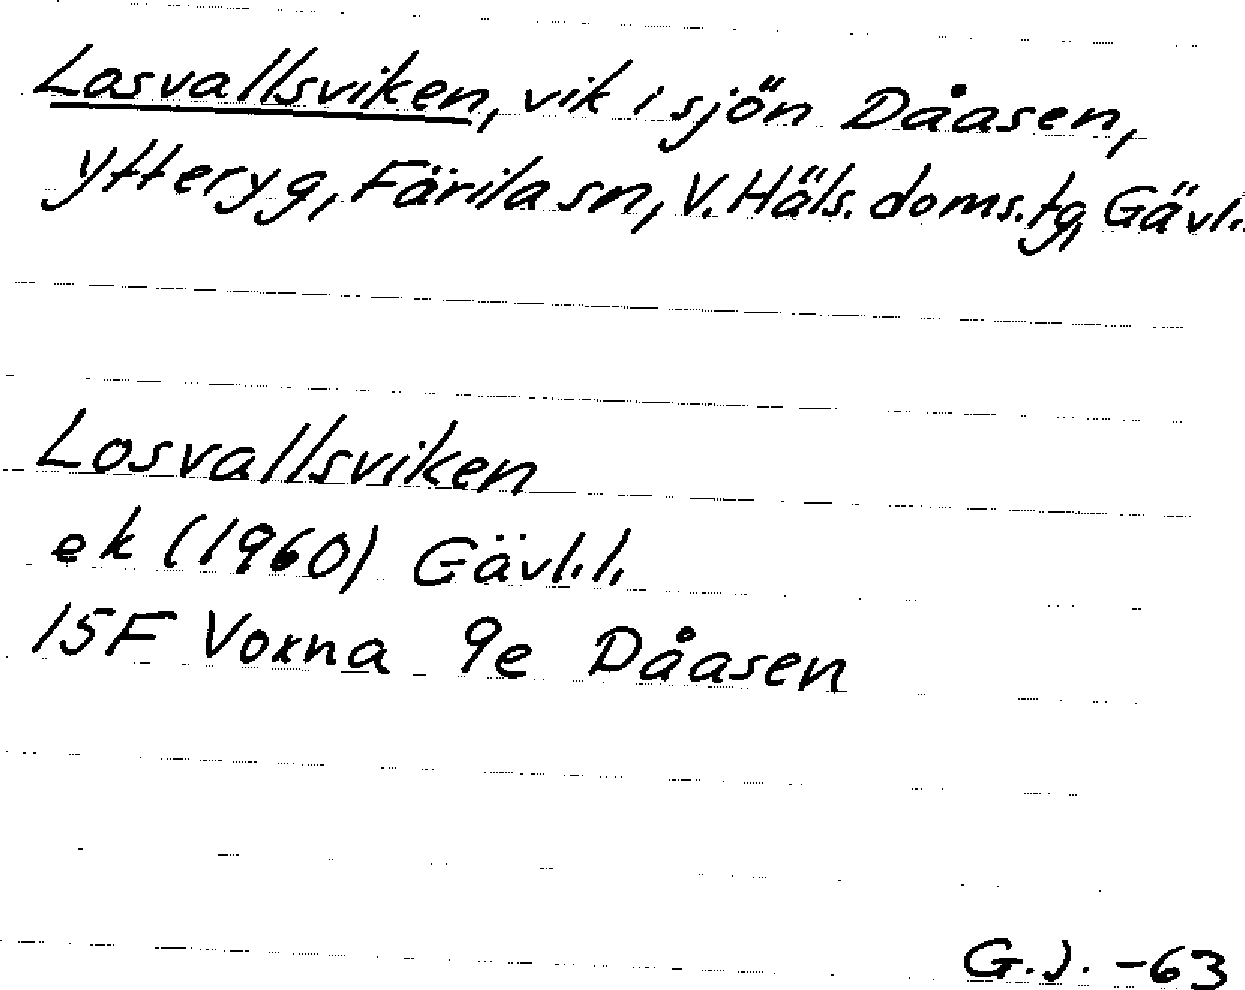 Losvallsviken, vik i sjön Dåasen,
ytteryg, Färila sn, V. Häls. doms.tg, Gävl.
Losvallsviken
ek (1960) Gävl.l.
15F Voxna 9e Dåasen
G.J. -63